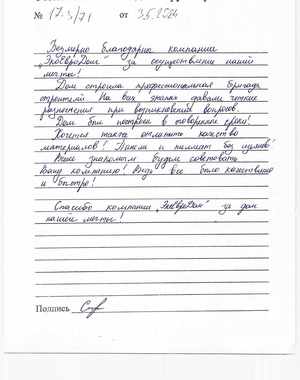 № 17.3/71 от 3.5.2024
Безмерно благодарю компании
„ЭкоЕвроДом" за осуществление нашей
мечты!
Дом строила профессиональная бригада
строителей. На все звонки давали четкие
разъяснения при возникновении вопросов.
Дом был построен в говоренные сроки!
Хочется также отметить качество
материалов!
Всем знакомым будем советовать
Вашу компанию! Ведь все было качественно
и быстро!
Спасибо компании „ЭкоЕвроДом" за дом
нашей мечты!
Подпись